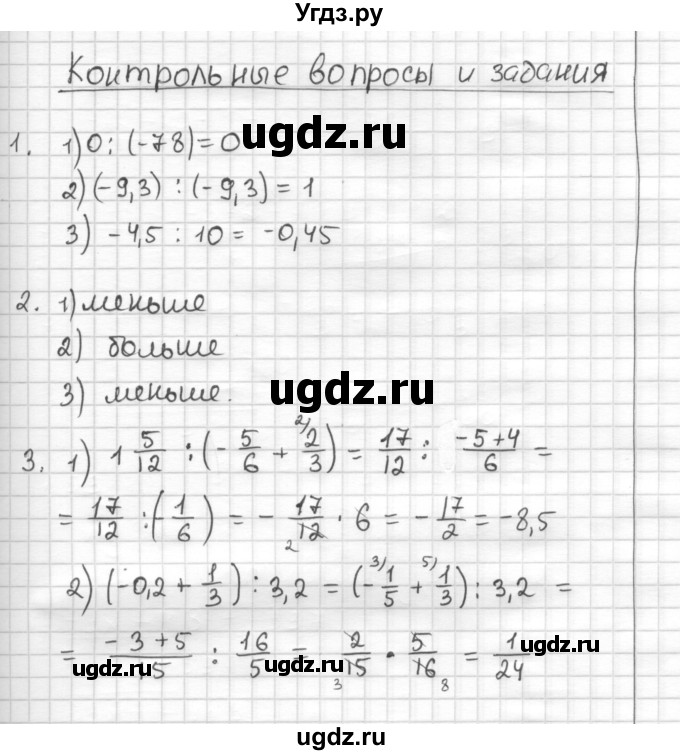 Угдз.ру
Контрольные вопросы и задания
1. 1) 0 : (-78) = 0
ugdz.ru
2) (-9,3) : (-9,3) = 1
3) -4,5 : 10 = -0,45
2. 1) меньше
2) больше
ugdz.ru
3) меньше.
3. 1) 1 5/12 : (-5/6 + 2)2/3) = 17/12 : (-5+4)/6 =
= 17/12 : (-1/6) = - 17/12 2 · 6 = - 17/2 = -8,5
2) (-0,2 + 1/3) : 3,2 = (- 3)1/5 + 5)1/3) : 3,2 =
= (-3+5)/15 : 16/5 = 2/15 3 · 5/16 8 = 1/24
ugdz.ru ugdz.ru ugdz.ru
ugdz.ru